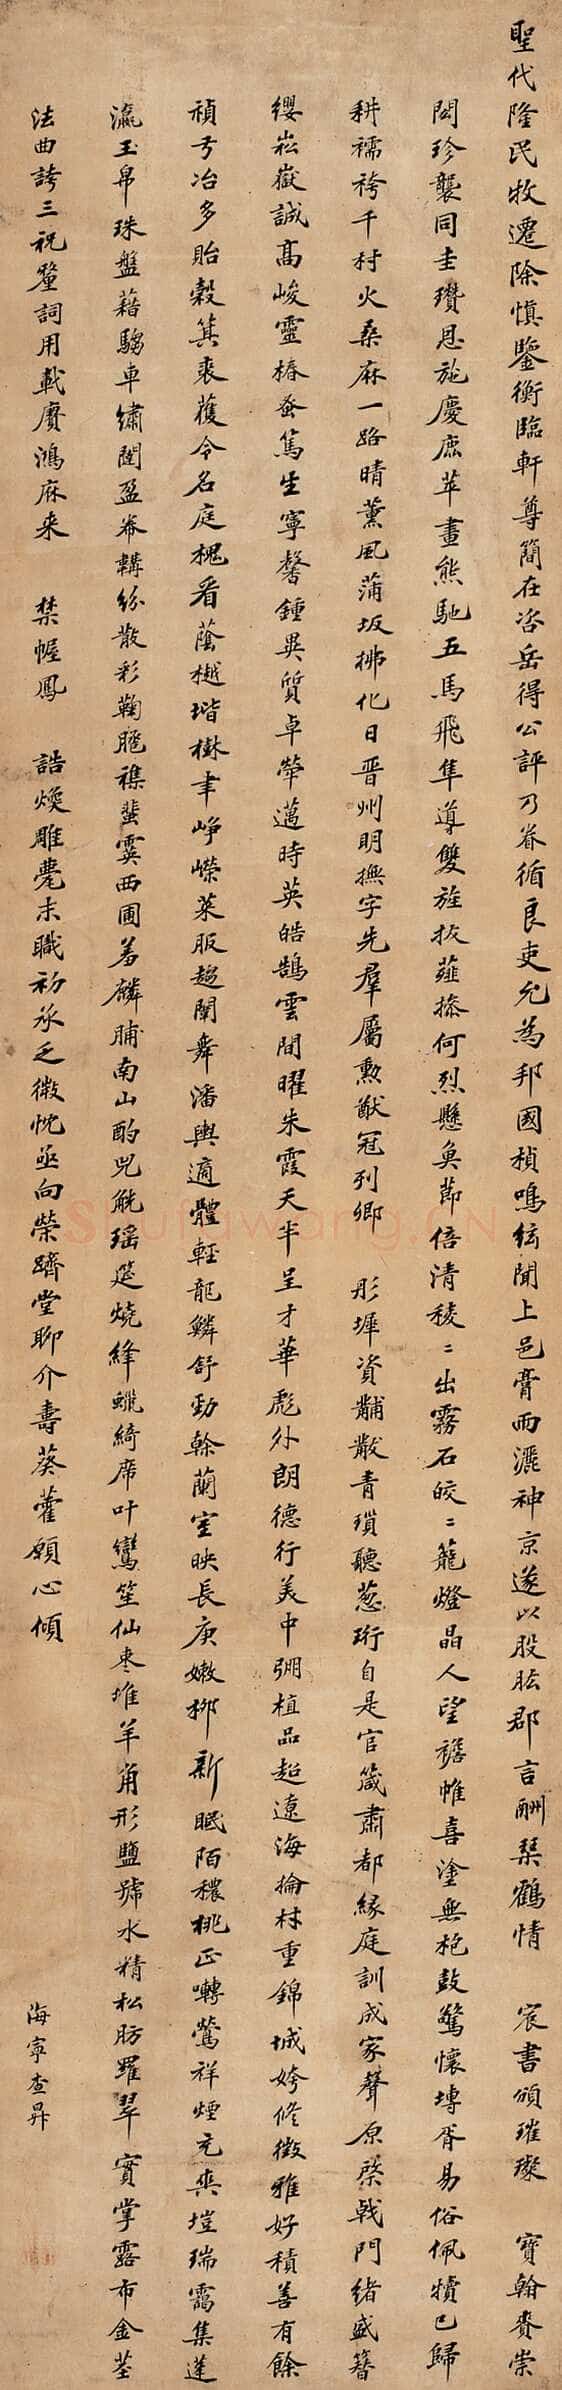 聖代隆民牧遷除慎鑒衡臨軒尊簡在咨岳得公評乃眷循良吏允為邦國楨鳴絃聞上邑膏雨灑神京遂以股肱郡言酬琴鶴情 宸書頒璀璨 寶翰賚崇
閎珍襲同圭瓚恩施慶鹿苹畫熊馳五馬飛隼導雙旌拔薤操何烈懸魚節倍清稜〻出霧石皎〻籠燈晶人望襜帷喜塗無枹鼓驚懷塼胥易俗佩犢已歸
耕襦袴千村火桑麻一路晴薰風蒲坂拂化日晉州明撫字先羣屬勲猷冠列卿 彤墀資黼黻青瑣聽蔥珩自是官箴肅都緣庭訓成家聲原棨戟門緒盛簪
纓崧嶽誠高峻靈椿蚤篤生寧馨鍾異質卓犖邁時英皓鵠雲間曜朱霞天半呈才華彪外朗德行美中弸植品超遼海掄材重錦城姱修徵雅好積善有餘
禎弓冶多貽穀箕裘獲令名庭槐看蔭樾堦樹聿崢嶸萊服趨闈舞潘輿適體輕龍鱗舒勁榦蘭室映長庚嫩柳新眠陌穠桃正囀鶯祥煙充爽塏瑞靄集蓬
瀛玉帛珠盤藉騶車繡闥盈帣韝紛散彩鞠䠆襍蜚霙西圃羞麟脯南山酌兕觥瑤筵燒絳蠟綺席叶鸞笙仙棗堆羊角形鹽號水精松肪羅翠 實掌露布金莖
法曲誇三祝蕫詞用載賡鴻麻来 禁幄鳳 誥煥雕甍末職初承乏微忱亟向榮躋堂聊介壽葵藿願心傾
海寧查昇
Shufawang.CN